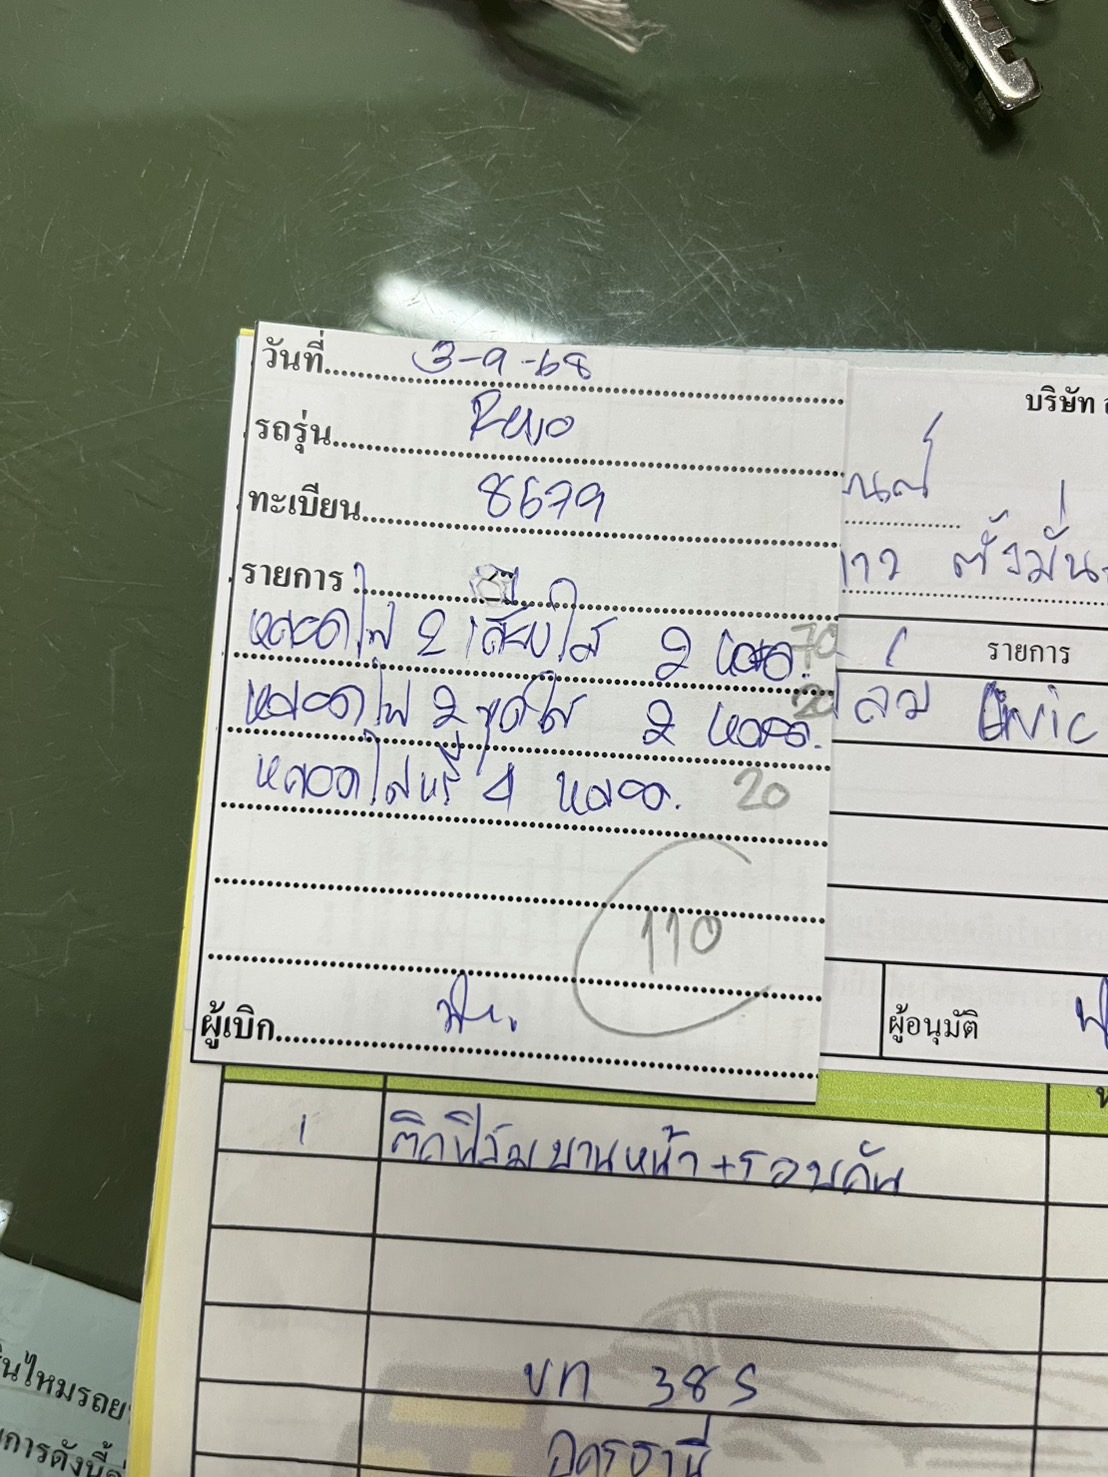 วันที่ 3-9-68
รถรุ่น Revo
ทะเบียน 8679
รายการ
หลอดไฟ 2 เสียบใส 2 หลอด. 70
หลอดไฟ 2 จุดใส 2 หลอด. 20
หลอดไส้หรี่ 4 หลอด. 20
110
ผู้เบิก
บริษัท
ตั้งมั่น
รายการ
Civic
ผู้อนุมัติ
1 ติดฟิล์มบานหน้า+รอบคัน
ขท 385
อุดรธานี